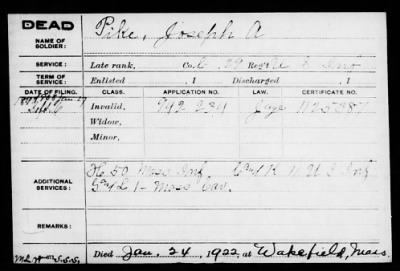 DEAD
NAME OF SOLDIER: Pike, Joseph A
SERVICE: Late rank, Co. 29 Reg't
TERM OF SERVICE: Enlisted , 1 Discharged , 1
DATE OF FILING. CLASS. APPLICATION NO. LAW. CERTIFICATE NO.
Invalid, 942234 1125387
Widow,
Minor,
ADDITIONAL SERVICES: 50 Mass Inf. Inf
1 Mass Cav.
REMARKS:
Died Jan. 24, 1922, at Wakefield, Mass.